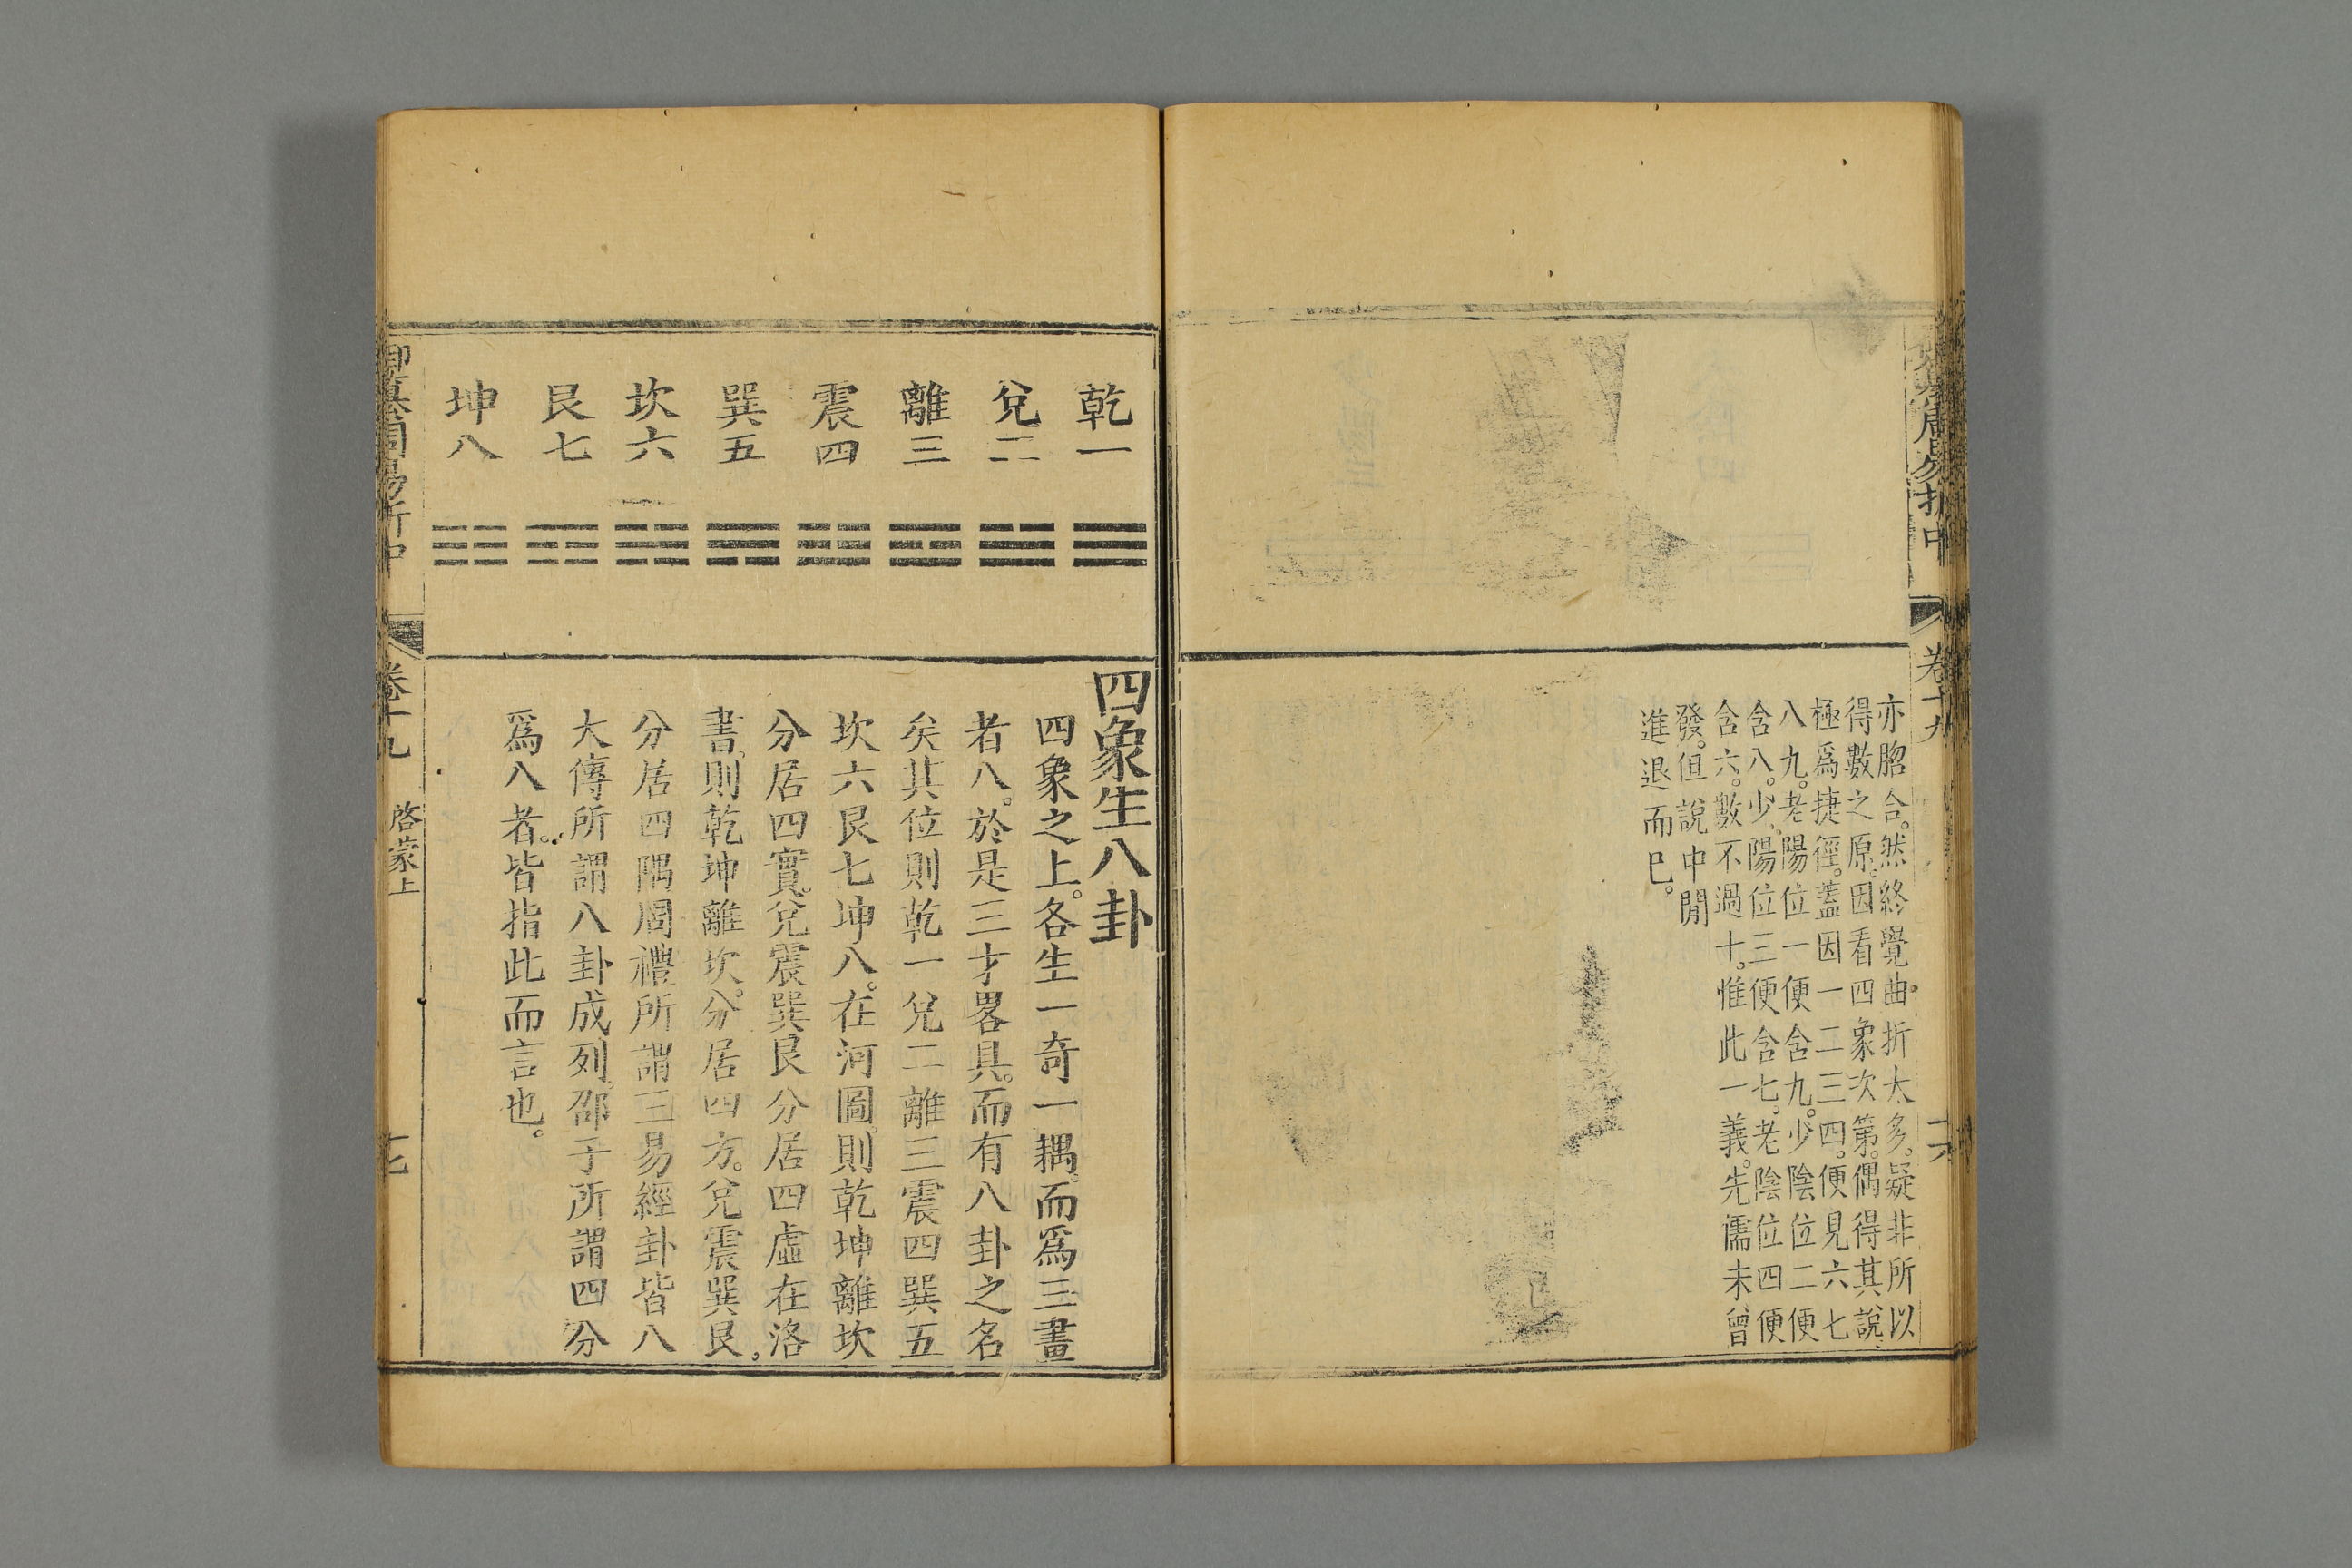 亦脗合。然終覺曲折太多。疑非所以
得數之原。因看四象次第。偶得其說、
極爲捷徑。蓋因一二三四。便見六七
八九。老陽位一便含九。少陰位二便
含八。少陽位三便含七。老陰位四便
含六。數不過十。惟此一義。先儒未曾
發。但說中閒
進退而已。
卷十九
十六
乾一
兌二
離三
震四
巽五
坎六
艮七
坤八
四象生八卦
四象之上。各生一奇一耦。而爲三畫
者八。於是三才畧具。而有八卦之名
矣。其位則乾一兌二離三震四巽五
坎六艮七坤八。在河圖。則乾坤離坎
分居四實。兌震巽艮分居四虛。在洛
書。則乾坤離坎。分居四方。兌震巽艮。
分居四隅。周禮所謂三易經卦皆八
大傳所謂八卦成列。邵子所謂四分
爲八者。皆指此而言也。
御纂周易折中
卷十九
啓蒙上
七